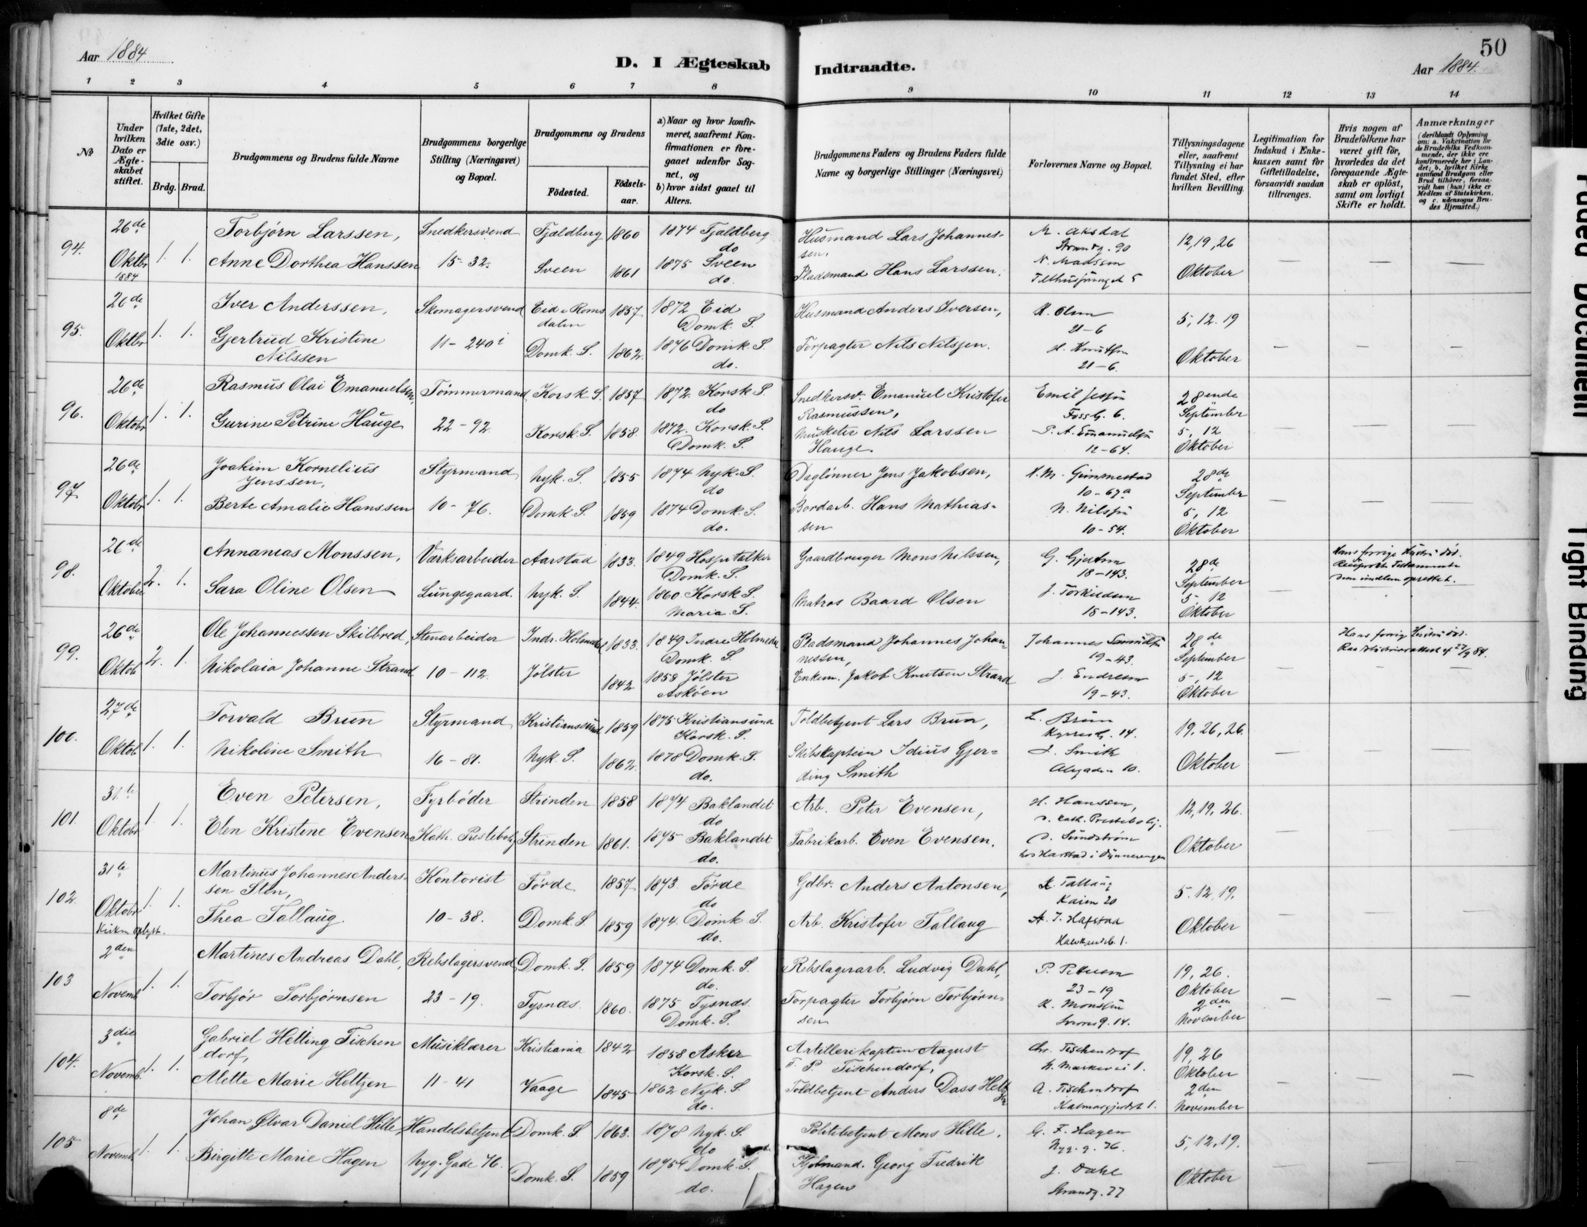 Aar 1884
D. I Ægteskab Indtraadte.
50
Aar 1884.
1 2 3 4 5 6 7 8 9 10 11 12 13 14
№
Under hvilken Dato er Ægteskabet stiftet.
Hvilket Gifte (1ste, 2det, 3die osv.)
Brdg. Brud.
Brudgommens og Brudens fulde Navne
Brudgommens borgerlige Stilling (Næringsvei) og Bopæl.
Brudgommens og Brudens
Fødested.
Fødselsaar.
a) Naar og hvor konfirmeret, saafremt Konfirmationen er foregaaet udenfor Sognet, og
b) hvor sidst gaaet til Alters.
Brudgommens Faders og Brudens Faders fulde Navne og borgerlige Stillinger (Næringsvei)
Forlovernes Navne og Bopæl.
Tillysningsdagene eller, saafremt Tillysning ei har fundet Sted, efter hvilken Bevilling.
Legitimation for Indskud i Enkekassen samt for Giftetilladelse, forsaavidt saadan tiltrænges.
Hvis nogen af Brudefolkene har været gift før, hvorledes da det foregaaende Ægteskab er opløst, samt om lovligt Skifte er holdt.
Anmærkninger
94. 26de Oktbr 1884 1. 1.
Torbjørn Larssen, Snedkersvend Fjeldberg 1860 1874 Fjeldberg do
Husmand Lars Johannessen. M. Aksdal Strandg. 90 12, 19, 26
Anne Dorthea Hanssen 15-32. Sveen 1861 1875 Sveen do.
Pladsmand Hans Larssen. N. Madsen 5 Oktober
95. 26de Oktbr 1. 1.
Iver Anderssen, Skomagersvend Eid i Romsdalen 1857 1872 Eid Domk. S.
Husmand Anders Iversen, K. Olsen 21-6 5, 12. 19
Gjertrud Kristine Nilssen 11-240 Domk. S. 1862 1876 Domk. S. do.
Forpagter Nils Nilssen. 21-6. Oktober
96. 26de Oktobr 1. 1.
Rasmus Olai Emanuelsen, Tømmermand Korsk. S. 1857 1872 Korsk. S. do
Snedkersv. Emanuel Kristofer Rasmussen, Emil 6. 28ende September
Gurine Petrine Hauge 22-92 Korsk. S. 1858 1872. Korsk. S. Domk. S.
Nils Larssen Hauge 12-64. 5, 12 Oktober
97. 26de Oktobr 1. 1.
Joakim Kornelius Jenssen, Styrmand Nyk. S. 1855 1874 Nyk. S. do
Daglønner Jens Jakobsen, N. M. Gimmestad 10-67a 28de September
Berte Amalie Hanssen 10-76. Domk. S. 1859 1874 Domk. S. do.
Bordarb. Hans Mathiassen N. Nilssen 10-54. 5, 12 Oktober
98. 26de Oktober 2. 1.
Annanias Monssen, Værksarbeider Aarstad 1833 1849 Domk. S.
Gaardbruger Mons Nilssen, G. 18-143. 28de September
Sara Oline Olsen Lungegaard. Nyk. S. 1844. 1860 Korsk S. Maria S.
Matros Baard Olsen J. Torkildsen 15-143. 5-12 Oktober
Hans forrige Hustru død.
99. 26de Oktob 2. 1.
Ole Johannessen Skilbred, Stenarbeider Indr. Holmedal 1833. 1849 Indre Holmedal Domk. S.
Pladsmand Johannes Johannessen, Johannes Samuelsen 19-43. 28de September
Nikolaia Johanne Strand 10-112. Jølster 1842 1858 Jølster Askøen
Enkem. Jakob Knutsen Strand J. Endresen 19-43. 5, 12 Oktober
Hans forrige Hustru død.
100. 27de Oktob. 1. 1.
Torvald Brun Styrmand Kristianssund 1859 1875 Kristianssund Korsk. S.
Toldbetjent Lars Brun, L. Brun 14. 19, 26, 26.
Nikoline Smith 16-81. Nyk. S. 1862. 1878 Domk. S. do.
Skibskaptein Idius Gjerding Smith J. Smith 10. Oktober
101 31te Oktobr 1. 1.
Even Petersen, Fyrbøder Strinden 1858 1874 Baklandet do
Arb. Peter Evensen, H. Hanssen, 12, 19, 26.
Elen Kristine Evensen Kath. Præstebolig Strinden 1861. 1875 Baklandet do.
Fabrikarb. Even Evensen. Sundstrøm Oktober
102 31te Oktobr 1. 1.
Martinus Johannes Anderssen Sten, Kontorist Førde 1857 1873. Førde do
Gdbr. Anders Antonsen, K. Tallaug Kaien 20 5. 12, 19.
Thea Tallaug. 10-38. Domk. S 1859 1874. Domk. S. do.
Arb. Kristofer Tallaug A. J. Hafstad Oktober
103 2den Novemb. 1. 1.
Martines Andreas Dahl, Rebslagersvend Domk. S. 1859 1874 Domk. S. do.
Rebslagerarb. Ludvig Dahl, P. Petersen 23-19 19, 26. Oktober
Torbjør Torbjørnsen 23-19. Tysnæs 1860. 1875 Tysnæs. Domk. S.
Forpagter Torbjørn Torbjørnsen K. Monssen 14. 2den November
104. 3die Novemb. 1. 1.
Gabriel Helling Tischendorf, Musiklærer Kristiania 1842 1858 Asker Korsk. S.
Artillerikaptein August F. P. Tischendorf, Chr. Tischendorf 1. 19, 26 Oktober
Alette Marie Heltzen 11-41 Vaage 1845 1862 Nyk. S. do.
Toldbetjent Anders Dass Heltzen A. Tischendorf 1. 2den November
105 8de Novemb. 1. 1.
Johan Olvar Daniel Hille, Handelsbetjent Domk. S. 1862. 1878 Nyk. S. do
Politibetjent Mons Hille. G. F. Hagen Nyg. g. 76. 5, 12, 19.
Birgitte Marie Hagen Nyg. Gade 76. Domk. S. 1859 1875 Domk. S. do.
Georg Fredrik Hagen J. Dahl Strandg. 77 Oktober
Faded Document
Tight Binding